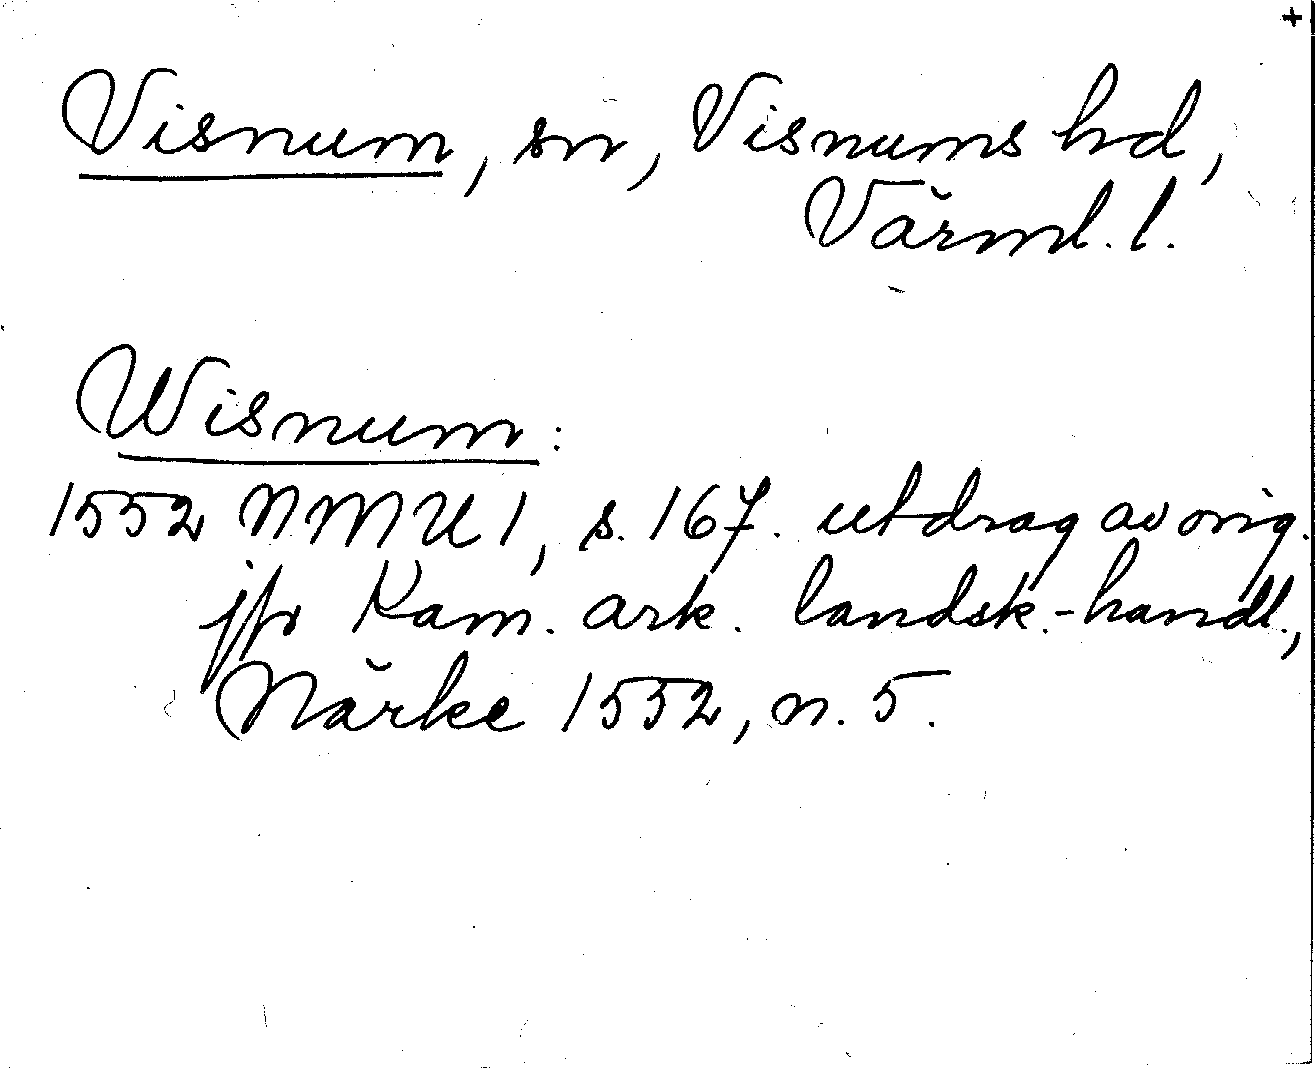 +
Visnum, sn, Visnums hd,
Värml. l.
Wisnum:
1552 NMU 1, s. 167. utdrag av orig.
jfr Kam. ark. landsk.-handl.,
Närke 1552, n. 5.